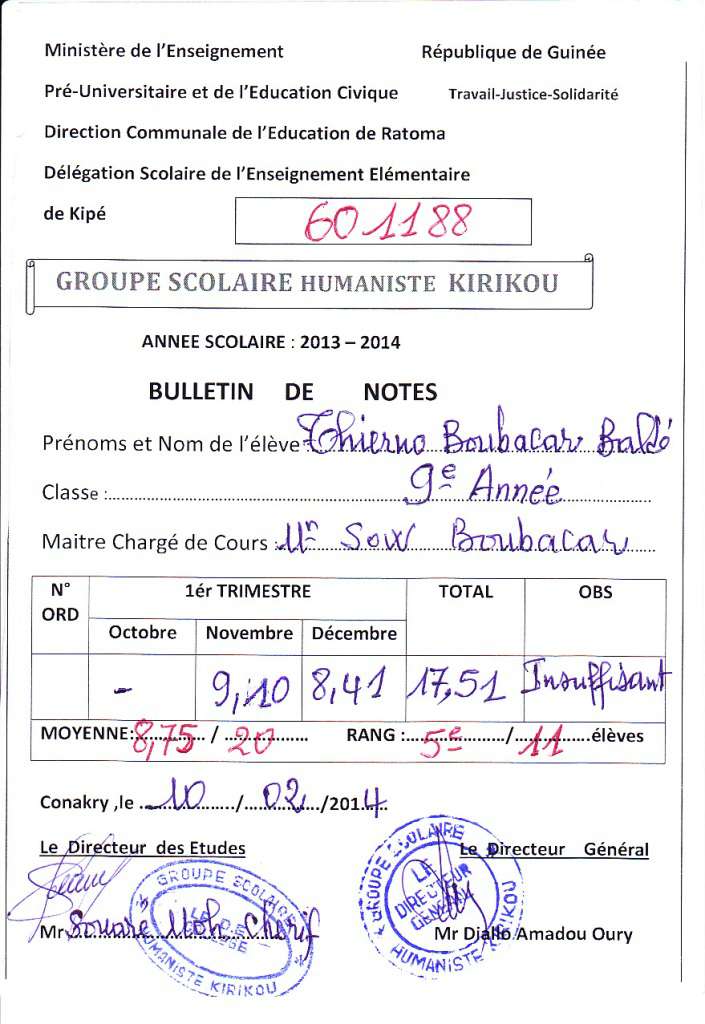 Ministère de l'Enseignement République de Guinée
Pré-Universitaire et de l'Education Civique Travail-Justice-Solidarité
Direction Communale de l'Education de Ratoma
Délégation Scolaire de l'Enseignement Elémentaire
de Kipé 601188
GROUPE SCOLAIRE HUMANISTE KIRIKOU
ANNEE SCOLAIRE : 2013 – 2014
BULLETIN DE NOTES
Prénoms et Nom de l'élève : Thierno Boubacar Baldé
Classe : 9e Année
Maitre Chargé de Cours : Mr Sow Boubacar
N° ORD 1ér TRIMESTRE TOTAL OBS
Octobre Novembre Décembre
- 9,10 8,41 17,51 Insuffisant
MOYENNE: 8,75 / 20 RANG : 5e / 11 élèves
Conakry ,le 10 / 02 /2014
Le Directeur des Etudes Le Directeur Général
Mr Souaré Moh. Cherif Mr Diallo Amadou Oury
GROUPE SCOLAIRE
HUMANISTE KIRIKOU
GROUPE SCOLAIRE
LE
DIRECTEUR
GENERAL
HUMANISTE KIRIKOU